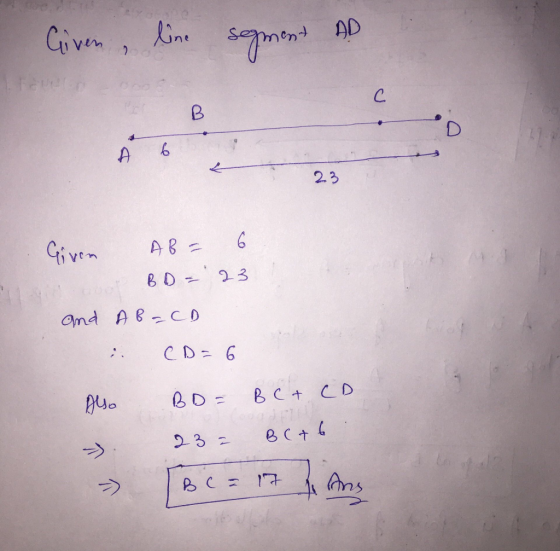 Given, line segment AD
B C
A 6 D
23
Given AB = 6
BD = 23
and AB = CD
∴ CD = 6
Also BD = BC + CD
⇒ 23 = BC + 6
⇒ BC = 17 Ans